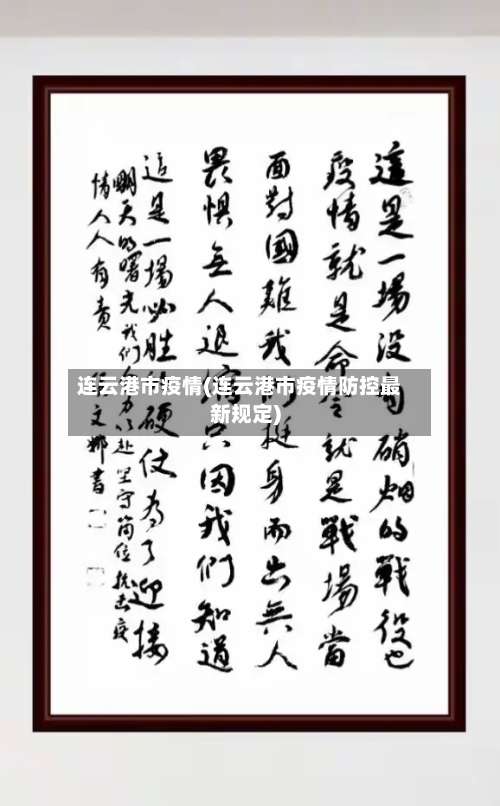 這是一場没有硝烟的戰役也
疫情就是命令就是戰場當
面對國難我们挺身而出無人
畏惧無人退缩只因我们知道
這是一場必胜的硬仗為了迎接
明天的曙光我们全力以赴坚守岗位抗击疫
情人人有責 文娜書
连云港市疫情(连云港市疫情防控最
新规定)